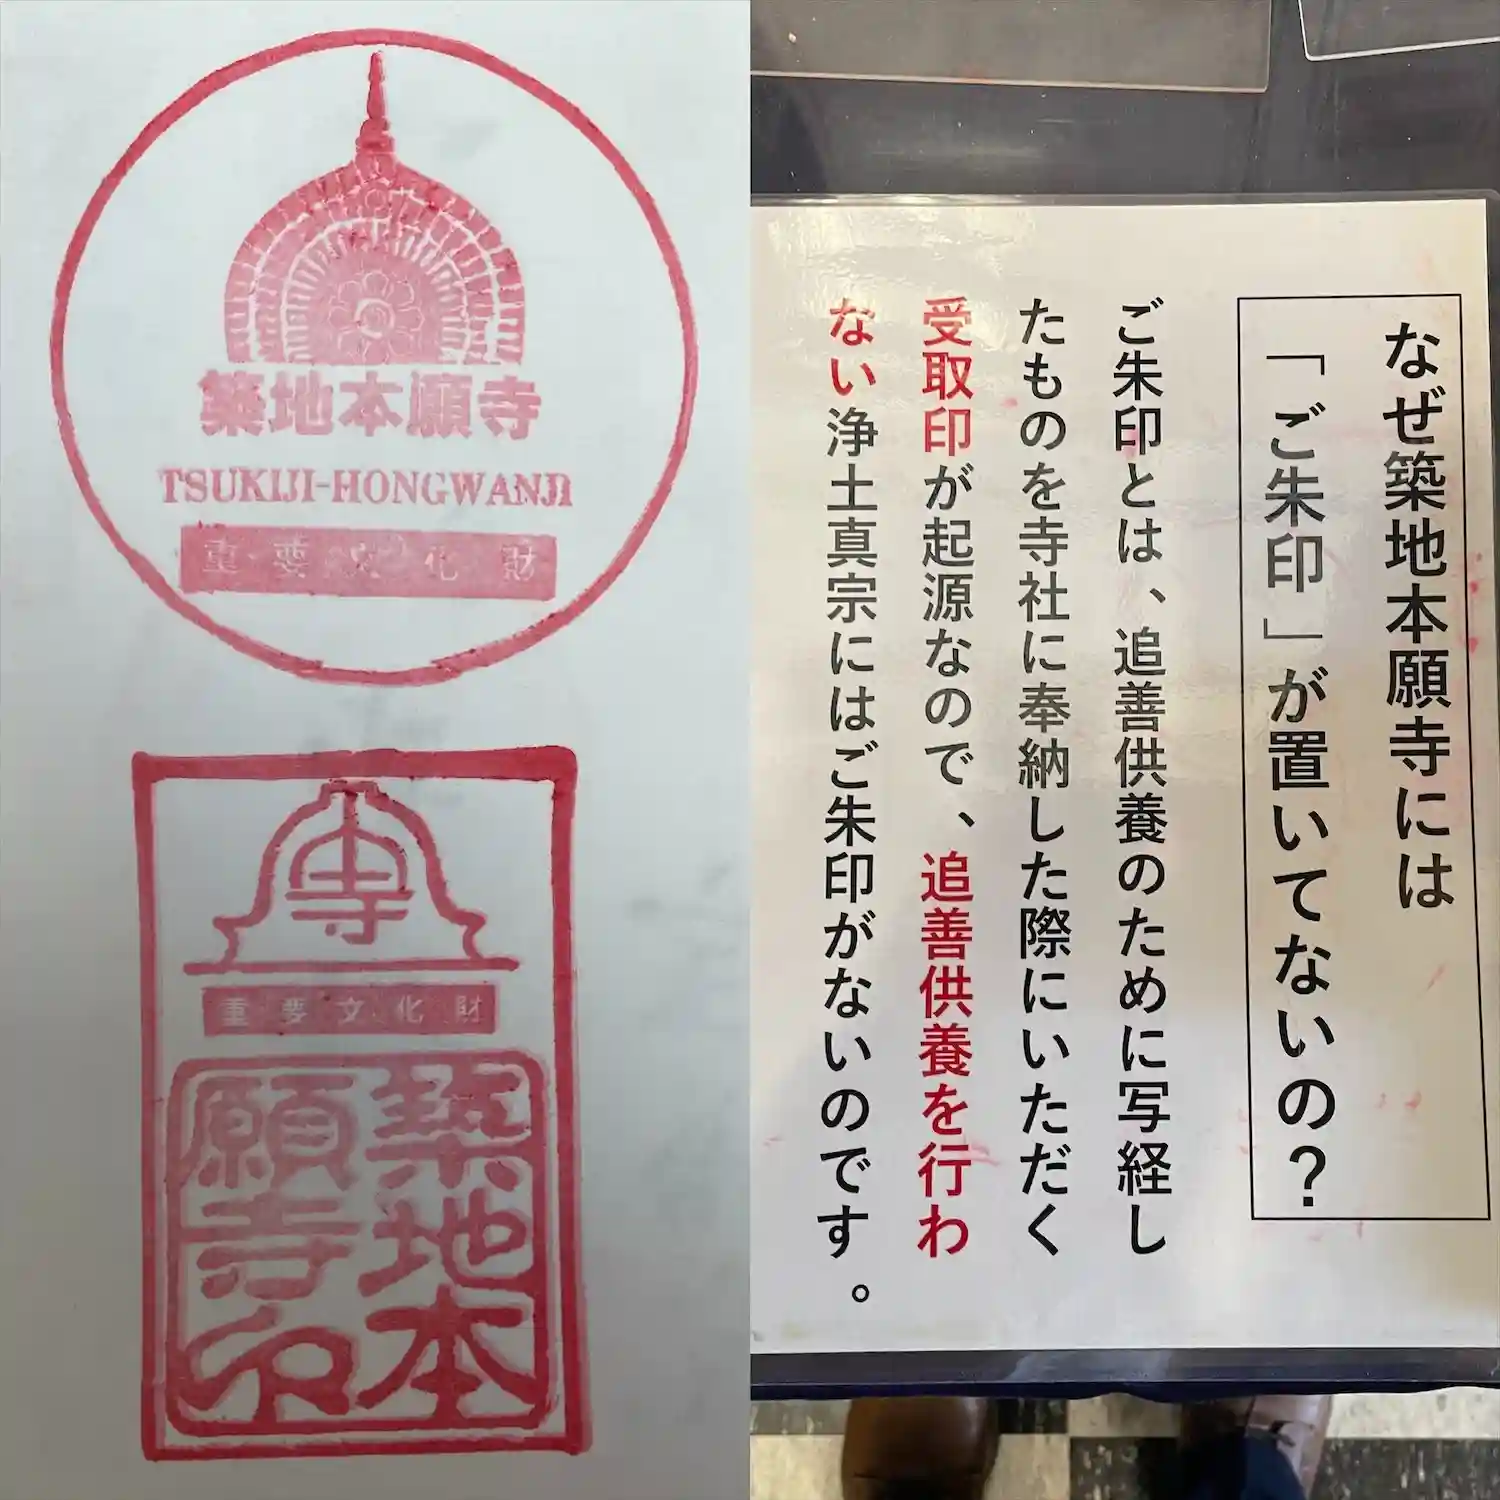 築地本願寺
TSUKIJI-HONGWANJI
重要文化財
寺
重要文化財
築地本
願寺印
なぜ築地本願寺には
「ご朱印」が置いてないの？
ご朱印とは、追善供養のために写経し
たものを寺社に奉納した際にいただく
受取印が起源なので、追善供養を行わ
ない浄土真宗にはご朱印がないのです。